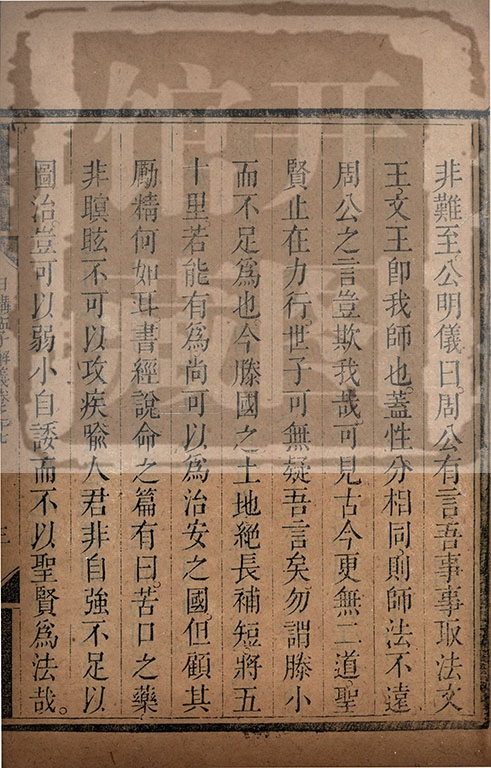 非難至公明儀曰周公有言吾事事取法文
王文王即我師也蓋性分相同則師法不遠
周公之言豈欺我哉可見古今更無二道聖
賢止在力行世子可無疑吾言矣勿謂滕小
而不足為也今滕國之土地絕長補短將五
十里若能有為尚可以為治安之國但顧其
勵精何如耳書經說命之篇有曰苦口之藥
非瞑眩不可以攻疾喻人君非自強不足以
圖治豈可以弱小自諉而不以聖賢為法哉